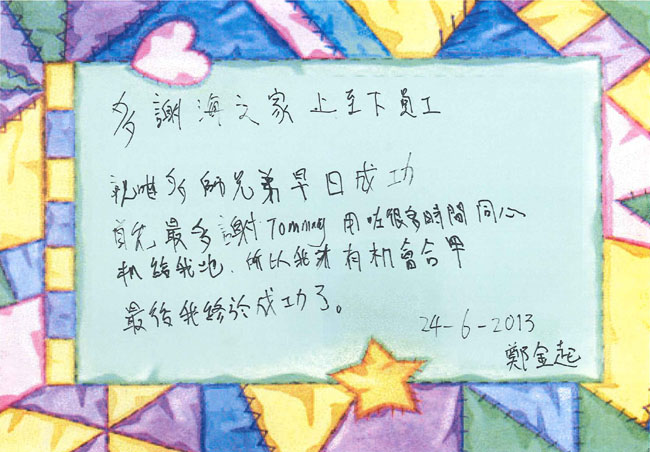 多謝海文家上至下員工
祝 多師兄弟早日成功
首先最多謝Tommy用咗很多時間同心
机給我地.所以我才有机會合
最後我終於成功了。
24-6-2013
鄭金起